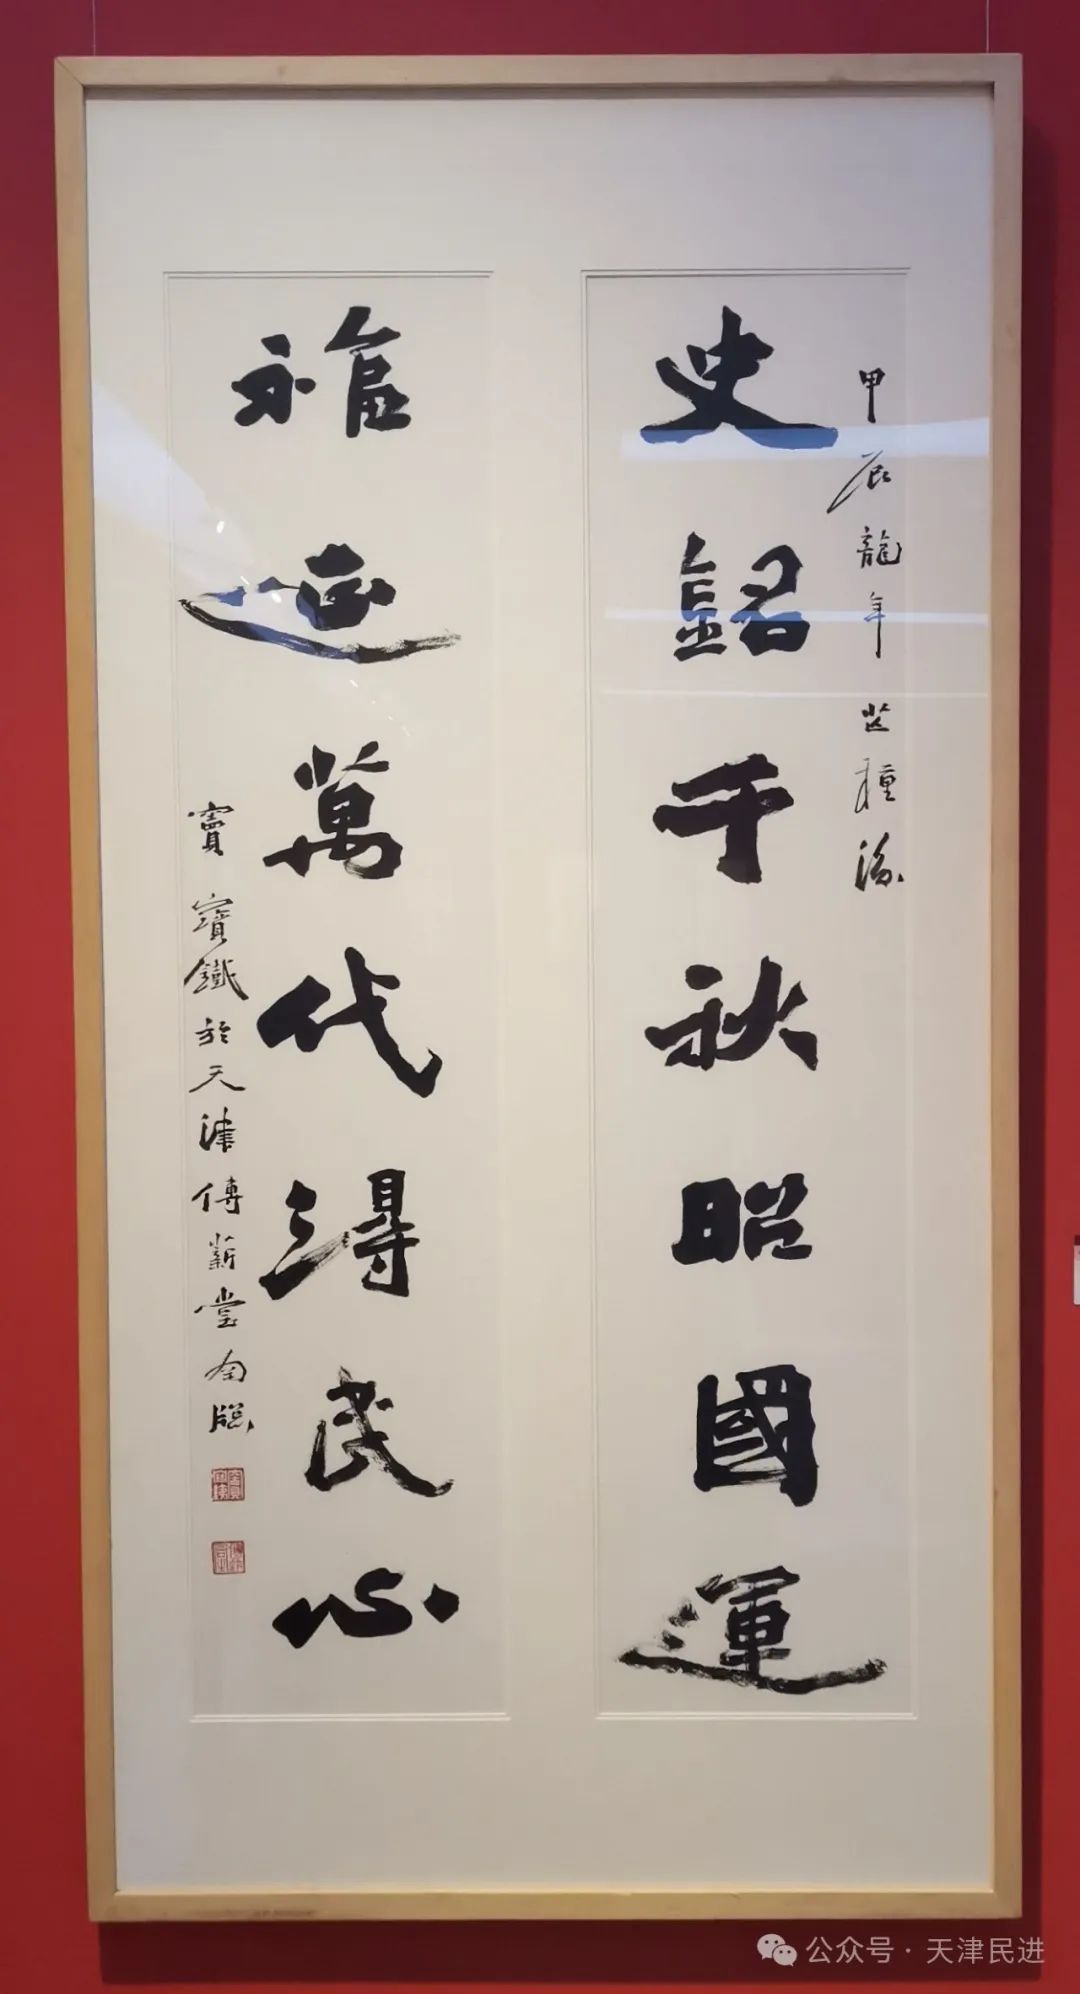 甲辰龍年芒種後
史銘千秋昭國運
福延萬代得民心
竇寶鐵於天津傳薪堂南牕
公众号·天津民进